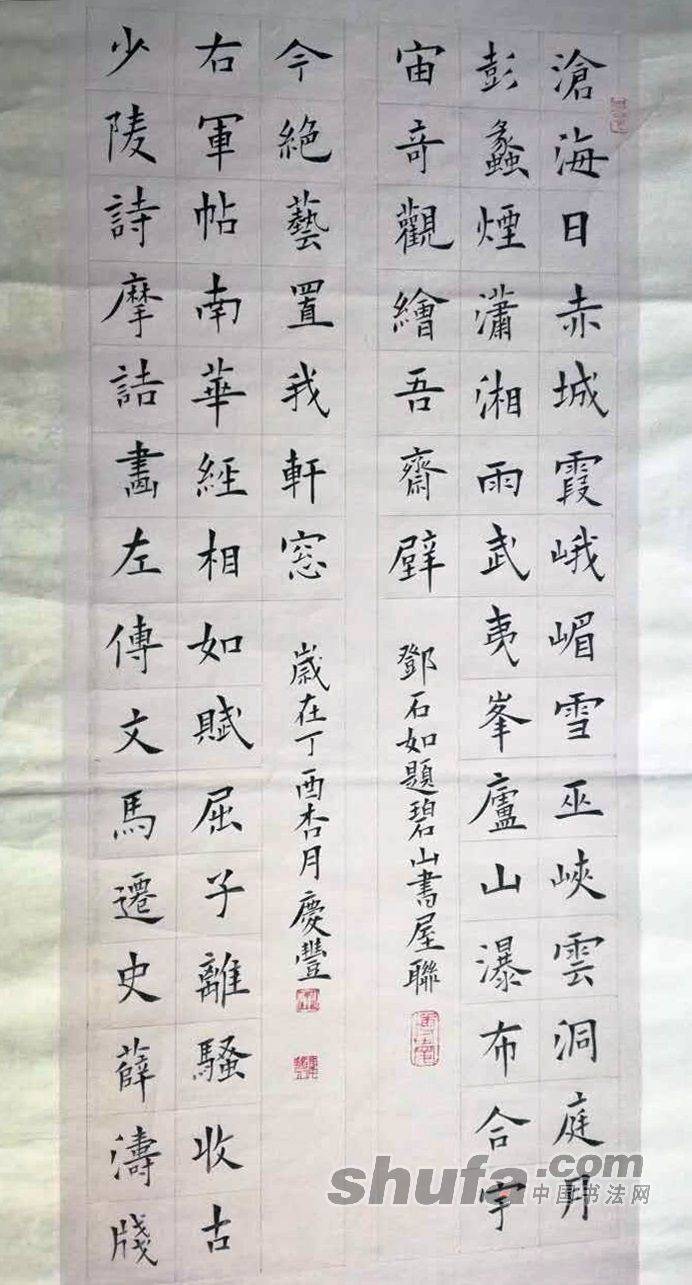 滄海日赤城霞峨嵋雪巫峽雲洞庭月
彭蠡煙瀟湘雨武夷峯廬山瀑布合宇
宙奇觀繪吾齋壁
鄧石如題碧山書屋聯
少陵詩摩詰畫左傳文馬遷史薛濤牋
右軍帖南華經相如賦屈子離騷收古
今絶藝置我軒窓
歲在丁酉杏月慶豐
shufa.com
中国书法网